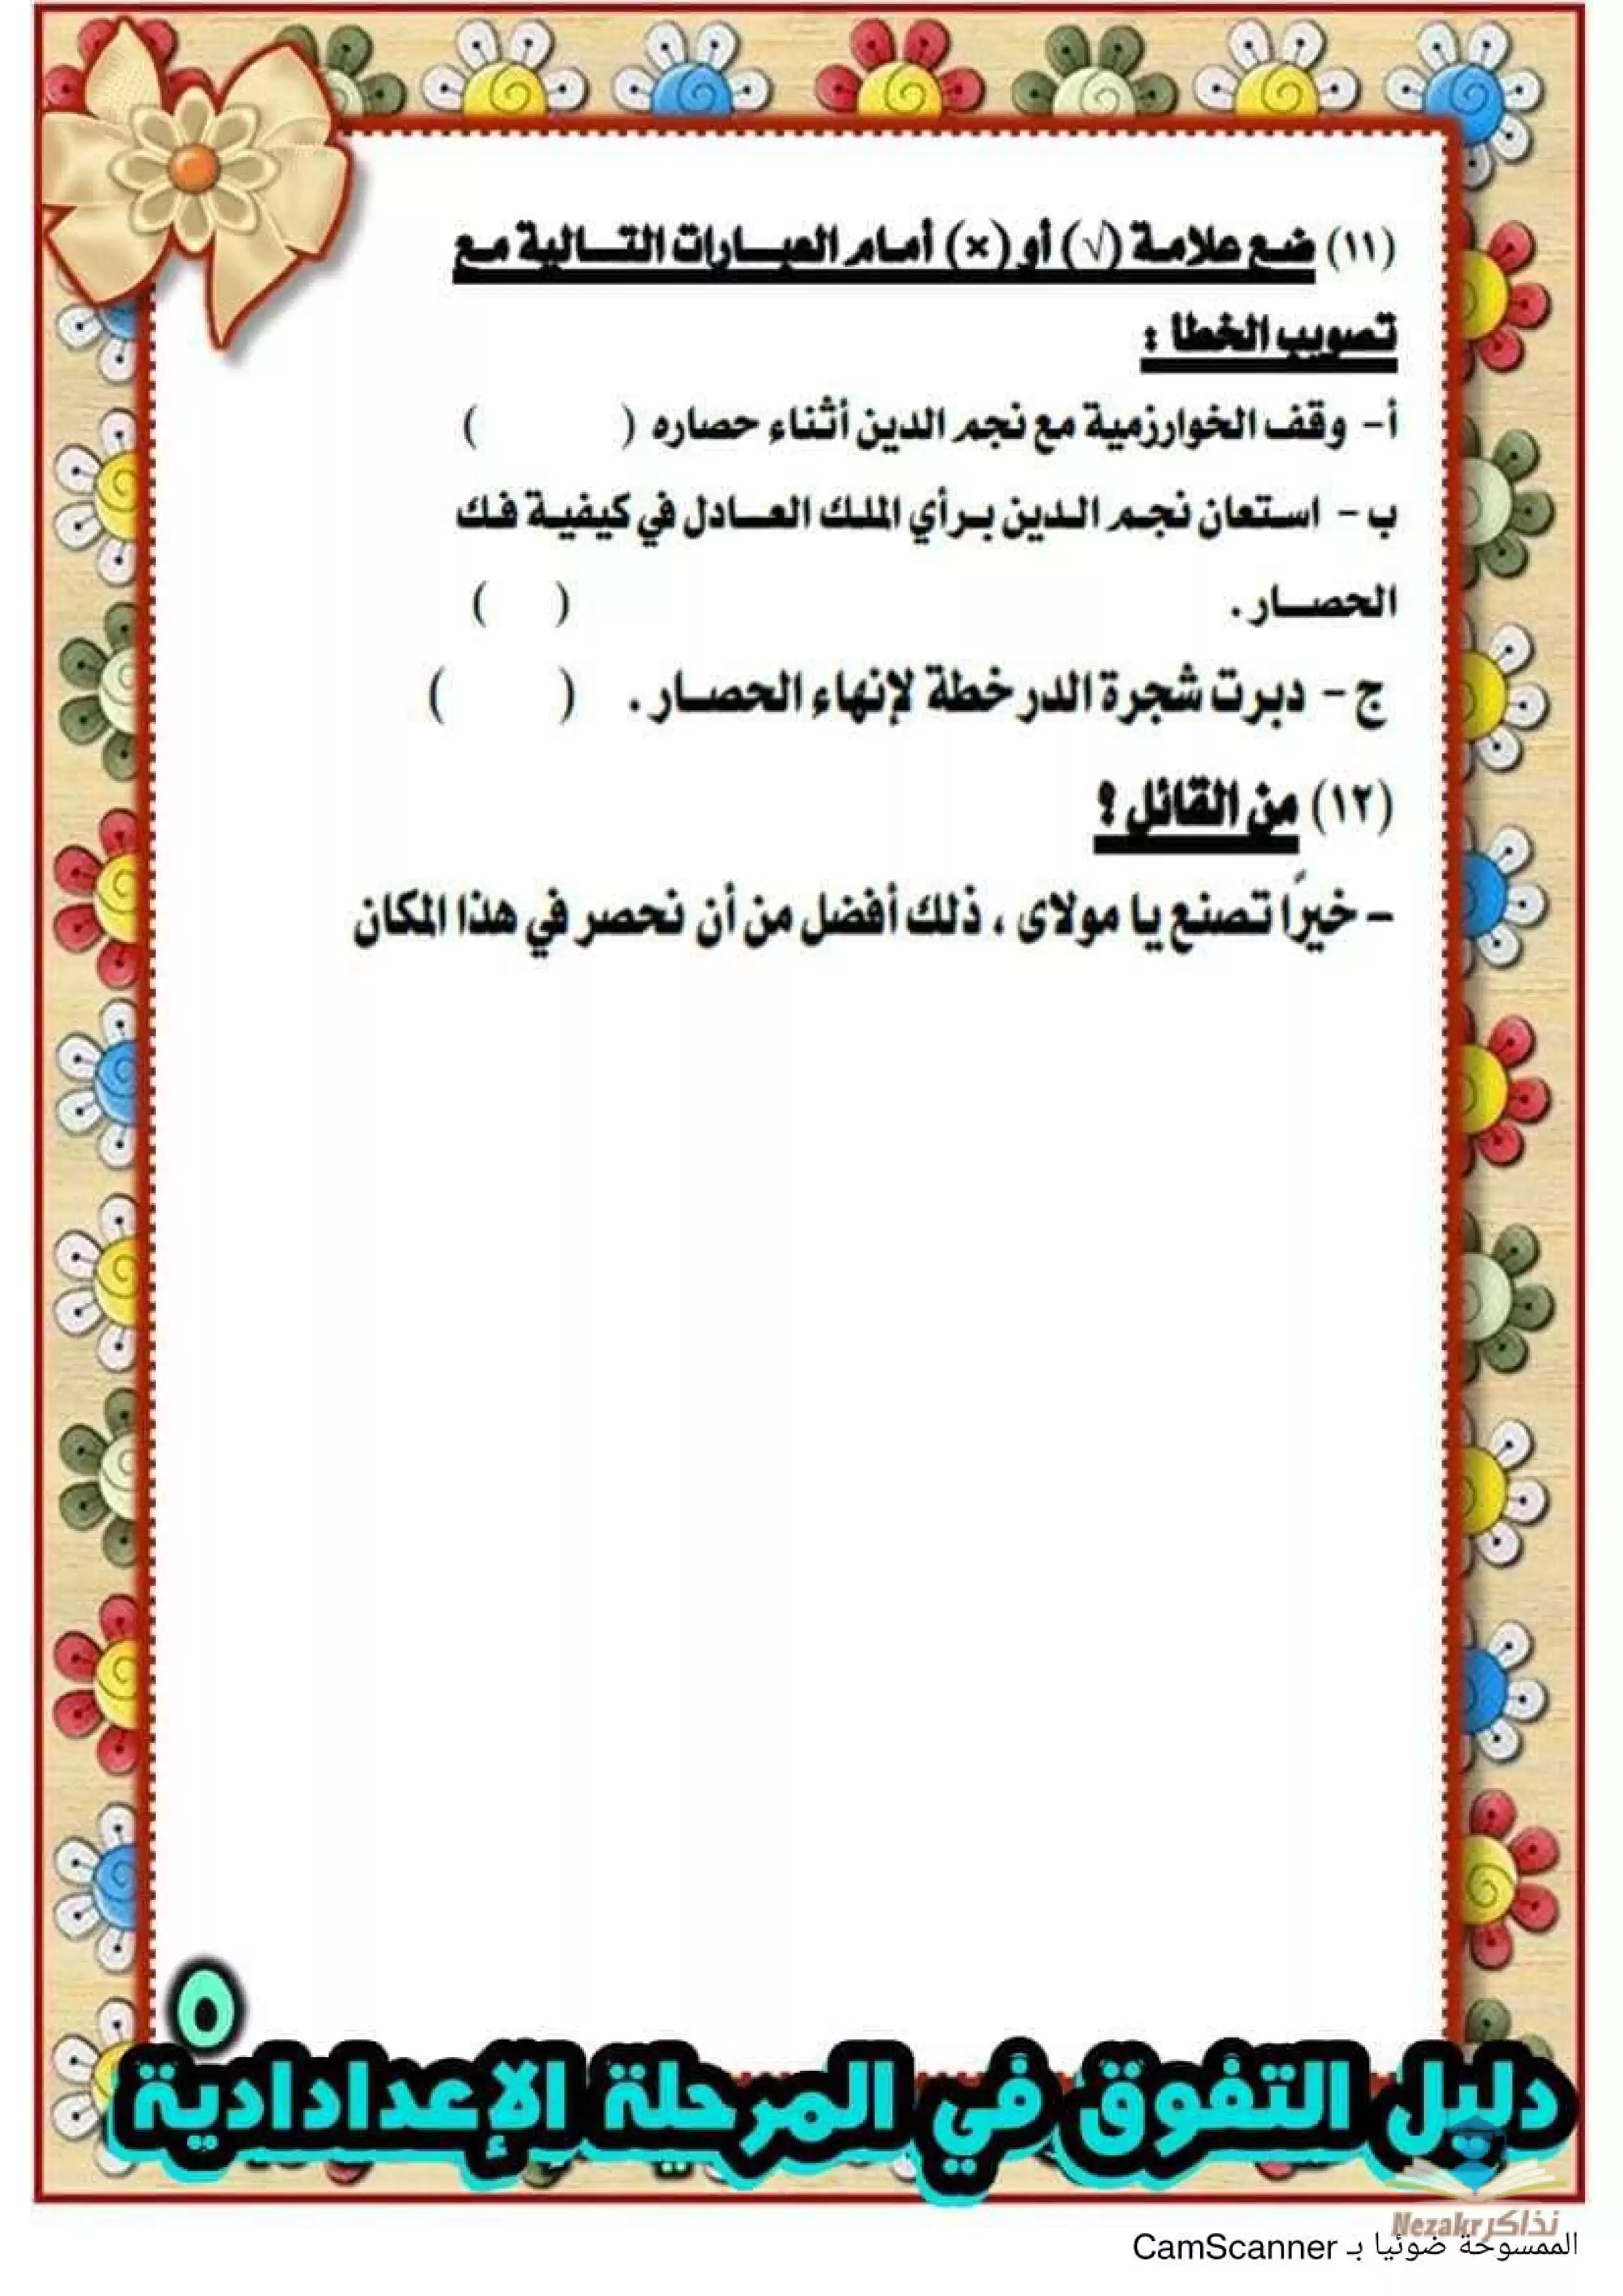 (١١) ضع علامة (√) أو (×) أمام العبارات التالية مع
تصويب الخطأ :
أ- وقف الخوارزمية مع نجم الدين أثناء حصاره ( )
ب- استعان نجم الدين برأي الملك العادل في كيفية فك
الحصار . ( )
ج- دبرت شجرة الدر خطة لإنهاء الحصار . ( )
(١٢) من القائل ؟
- خيرًا تصنع يا مولاى ، ذلك أفضل من أن نحصر في هذا المكان
٥
دليل التفوق في المرحلة الإعدادادية
Nezakr نذاكر
الممسوحة ضوئيا بـ CamScanner